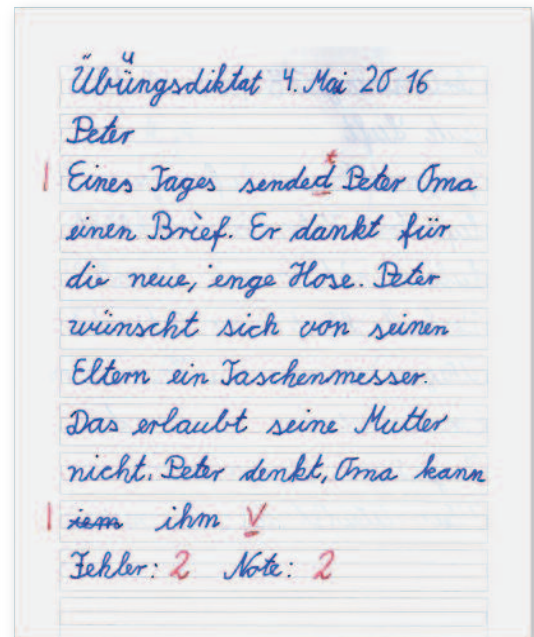 Übüngsdiktat 4. Mai 2016
Peter
Eines Tages sended t Peter Oma
einen Brief. Er dankt für
die neue, enge Hose. Peter
wünscht sich von seinen
Eltern ein Taschenmesser.
Das erlaubt seine Mutter
nicht. Peter denkt, Oma kann
iem ihm V
Fehler: 2 Note: 2